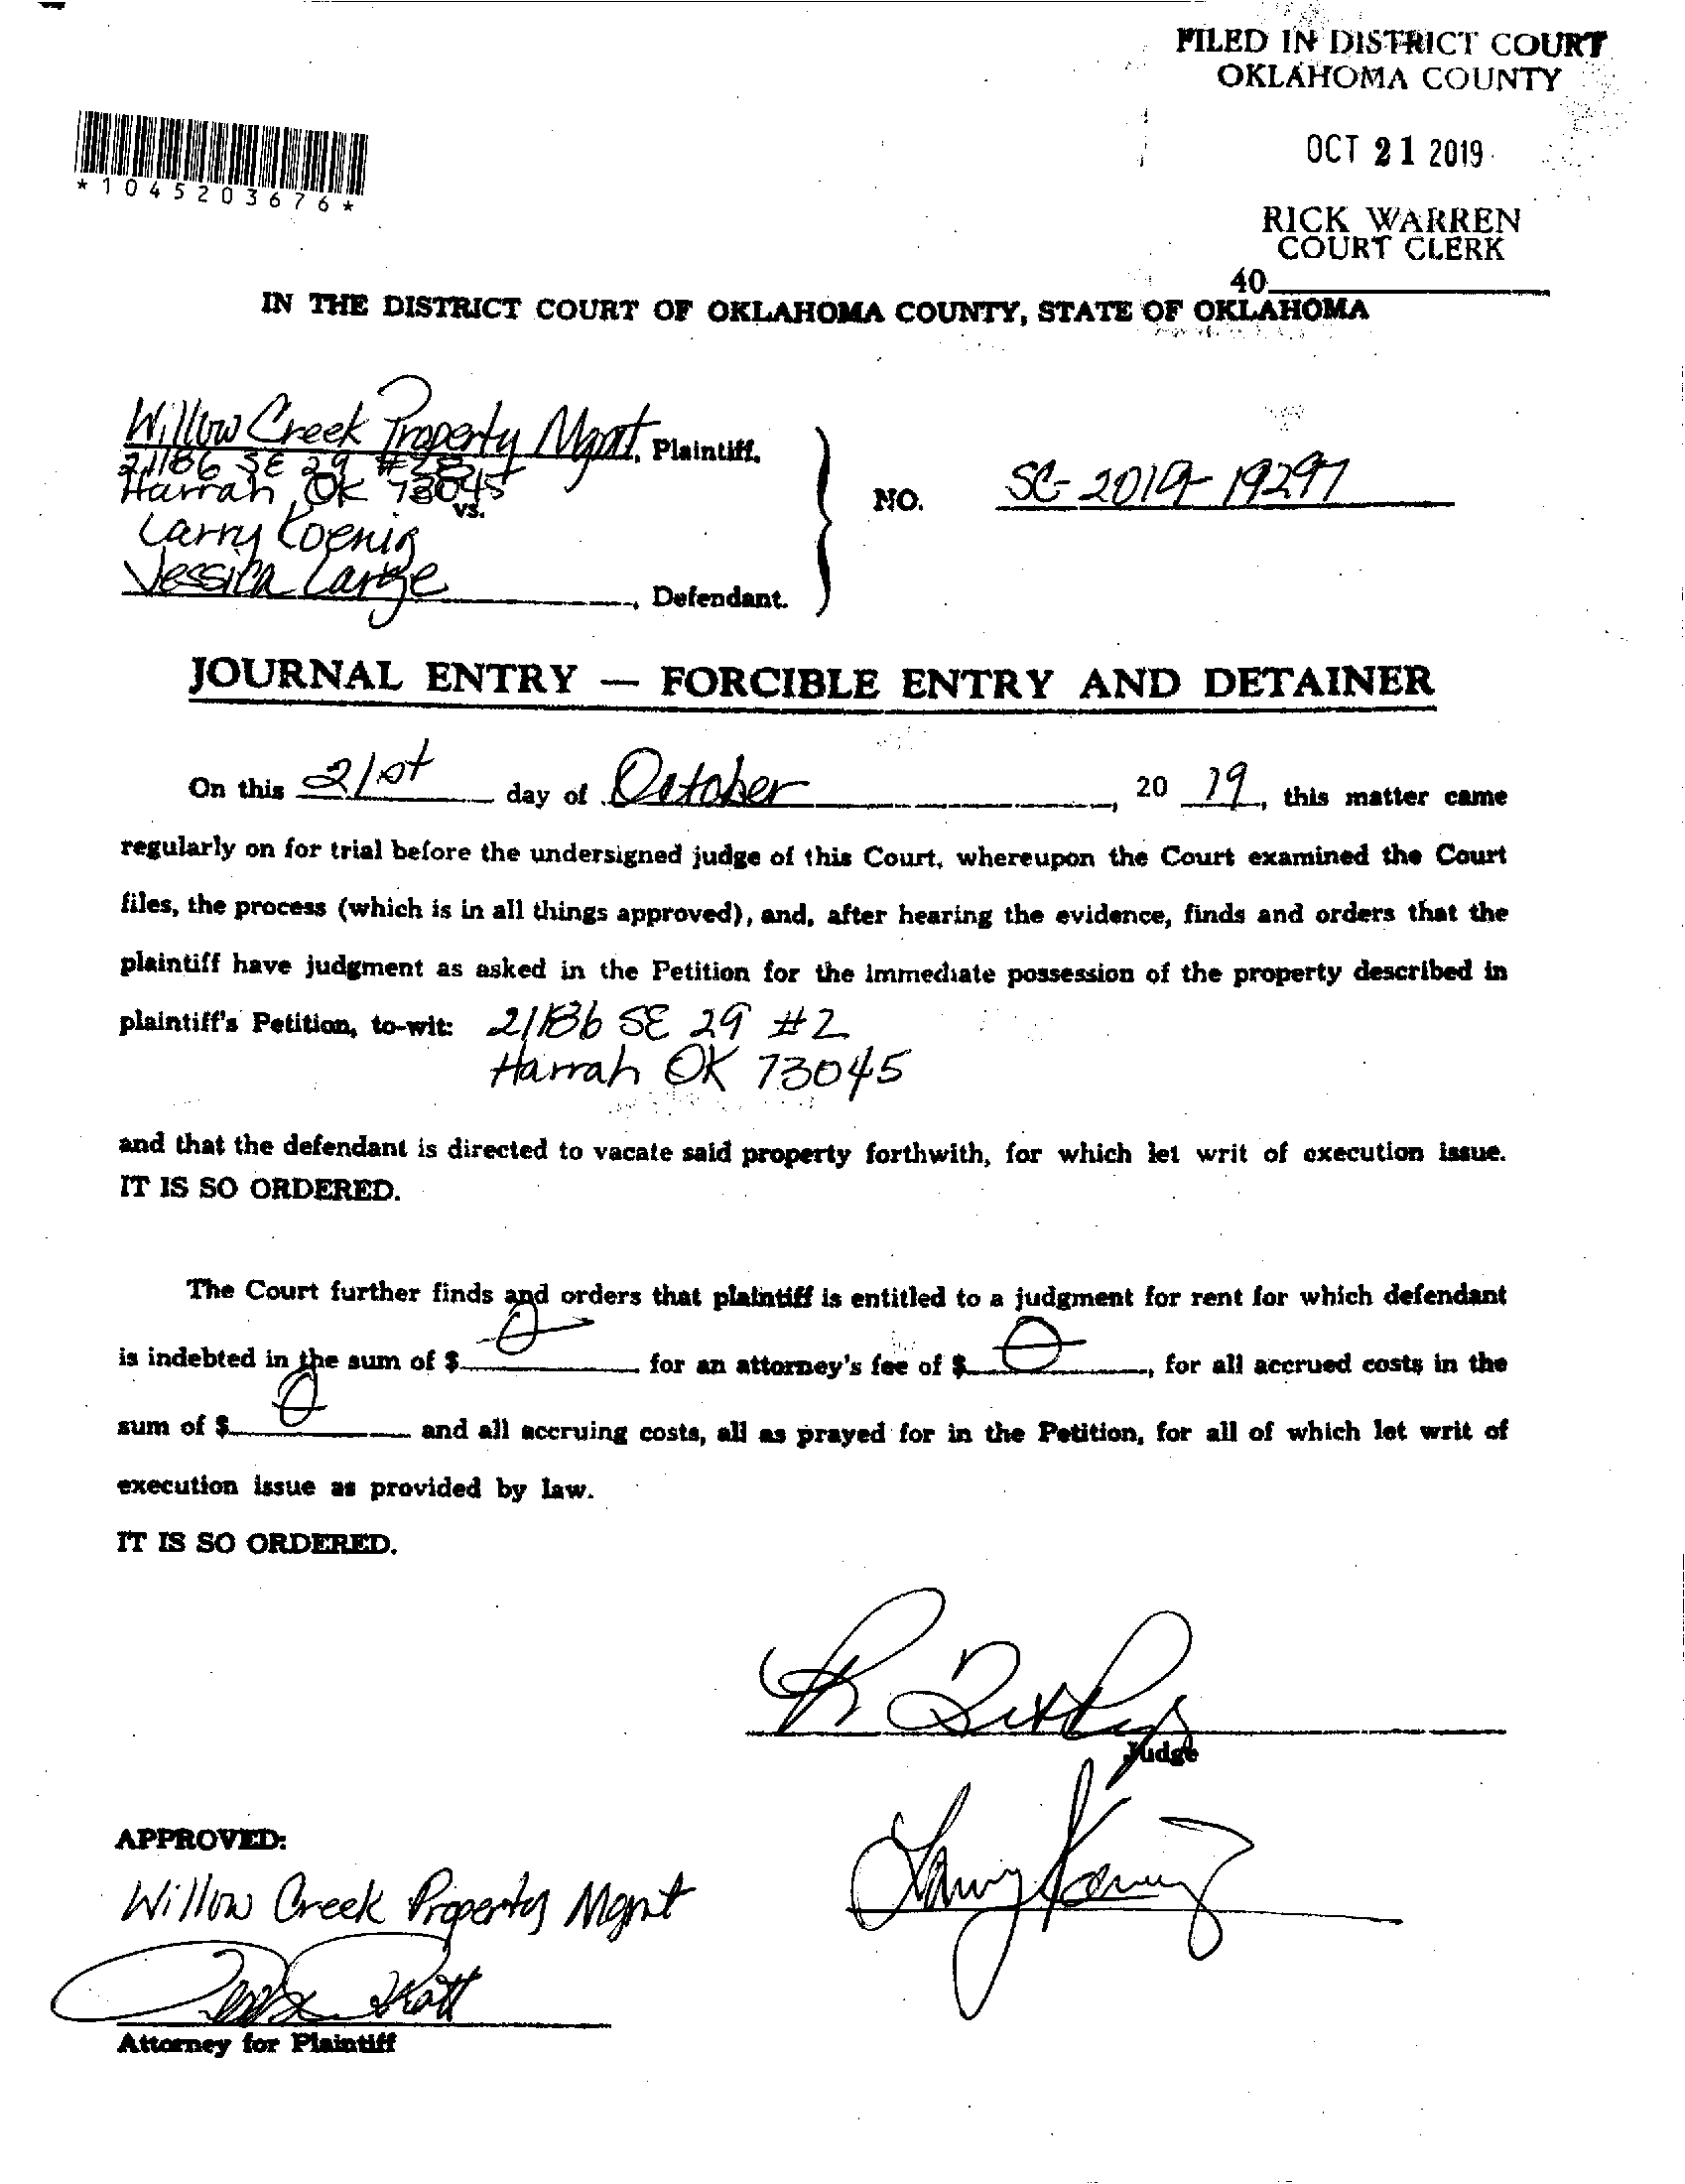 FILED IN DISTRICT COURT
OKLAHOMA COUNTY
OCT 21 2019
*1045203676*
RICK WARREN
COURT CLERK
40
IN THE DISTRICT COURT OF OKLAHOMA COUNTY, STATE OF OKLAHOMA
Willow Creek Property Mgmt, Plaintiff,
21186 SE 29
Harrah, OK 73045
vs.
NO. SC-2019-19297
Larry Koenig
Jessica
, Defendant.
JOURNAL ENTRY — FORCIBLE ENTRY AND DETAINER
On this 21st day of October, 20 19, this matter came
regularly on for trial before the undersigned judge of this Court, whereupon the Court examined the Court
files, the process (which is in all things approved), and, after hearing the evidence, finds and orders that the
plaintiff have judgment as asked in the Petition for the immediate possession of the property described in
plaintiff's Petition, to-wit: 21186 SE 29 #2
Harrah OK 73045
and that the defendant is directed to vacate said property forthwith, for which let writ of execution issue.
IT IS SO ORDERED.
The Court further finds and orders that plaintiff is entitled to a judgment for rent for which defendant
is indebted in the sum of $ 0 for an attorney's fee of $ 0, for all accrued costs in the
sum of $ 0 and all accruing costs, all as prayed for in the Petition, for all of which let writ of
execution issue as provided by law.
IT IS SO ORDERED.
Judge
APPROVED:
Willow Creek Property Mgmt
Larry Koenig
Attorney for Plaintiff